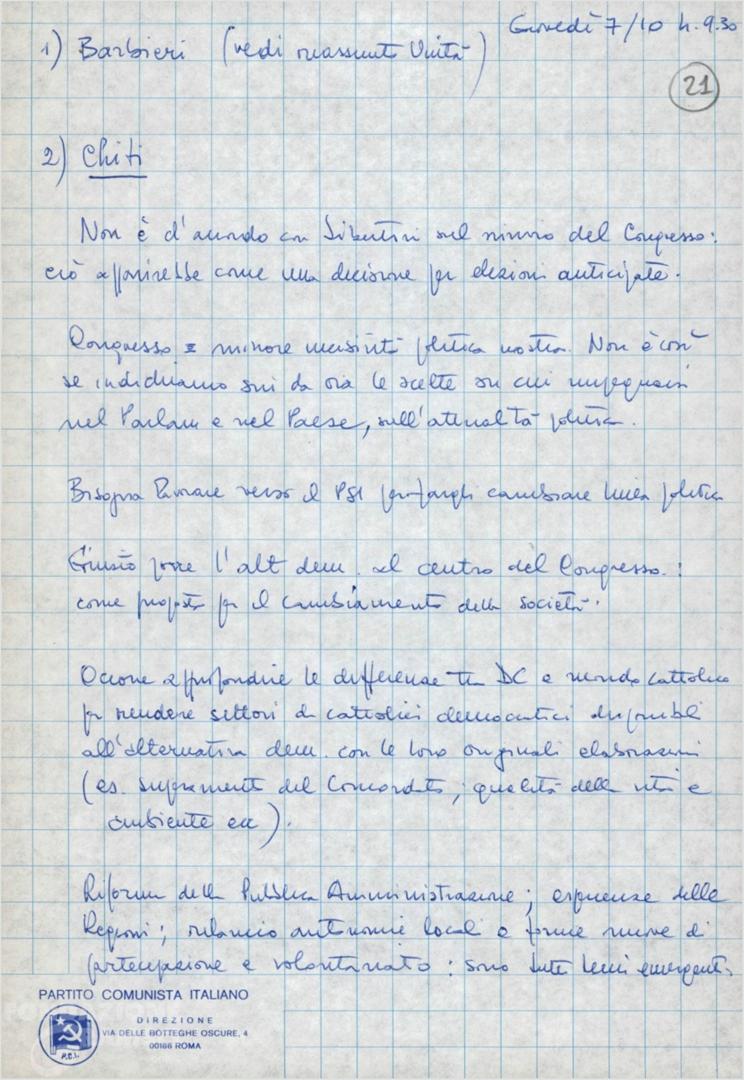 Giovedì 7/10 h. 9.30
1) Barbieri (vedi riassunto Unità)
21
2) Chiti
Non è d'accordo con Libertini sul rinvio del Congresso:
ciò apparirebbe come una decisione per elezioni anticipate.
Congresso = minore incisività politica nostra. Non è così
se individuiamo sin da ora le scelte su cui impegnarsi
nel Parlam e nel Paese, sull'attualità politica.
Bisogna lavorare verso il PSI per fargli cambiare linea politica
Giusto porre l'alt dem. al centro del Congresso:
come proposta per il cambiamento della società.
Occorre approfondire le differenze tra DC e mondo cattolico
per rendere settori di cattolici democratici disponibili
all'alternativa dem. con le loro originali elaborazioni
(es. superamento del Concordato; qualità della vita e
ambiente ecc).
Riforma della Pubblica Amministrazione; esperienze delle
Regioni; rilancio autonomie locali e forme nuove di
partecipazione e volontariato: sono tutti temi emergenti
PARTITO COMUNISTA ITALIANO
DIREZIONE
VIA DELLE BOTTEGHE OSCURE, 4
00186 ROMA
P.C.I.